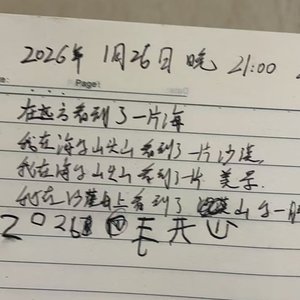 2026年 1月26日 晚 21:00
Page:
Date:
在远方看到了一片海
我在海与山头山看到了一片沙漠
我在海与山头看到了一片 美景.
我在沙漠上看到了 山与一
2026 年 开心